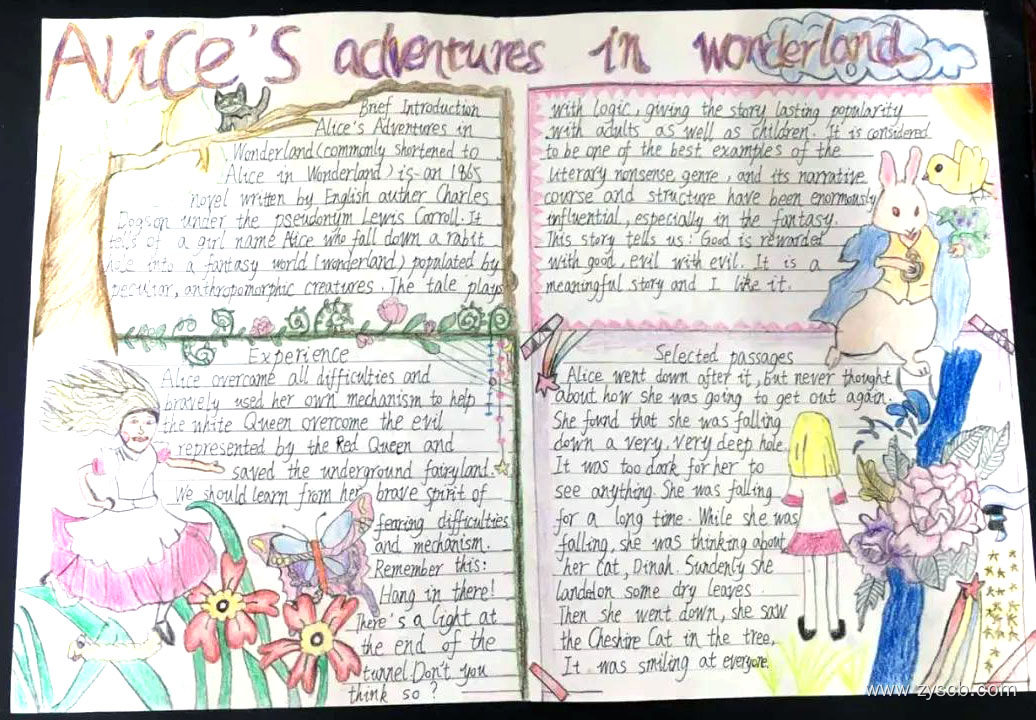 Alice's adventures in wonderland
Brief Introduction
Alice's Adventures in
Wonderland (commonly shortened to
Alice in Wonderland) is an 1865
novel written by English auther Charles
Dogson under the pseudonym Lewis Carroll. It
tells of a girl name Alice who fall down a rabit
hole into a fantasy world (wonderland) populated by
peculiar, anthropomorphic creatures. The tale plays
with logic, giving the story lasting popularity
with adults as well as children. It is considered
to be one of the best examples of the
literary nonsense genre, and its narrative
course and structure have been enormously
influential, especially in the fantasy.
This story tells us: Good is rewarded
with good, evil with evil. It is a
meaningful story and I like it.
Experience
Alice overcame all difficulties and
bravely used her own mechanism to help
the white Queen overcome the evil
represented by the Red Queen and
saved the underground fairyland.
We should learn from her brave spirit of
fearing difficulties
and mechanism.
Remember this:
Hang in there!
There's a light at
the end of the
tunnel. Don't you
think so?
Selected passages
Alice went down after it, but never thought
about how she was going to get out again.
She fufnd that she was falling
down a very, very deep hole.
It was too dark for her to
see anything. She was falling
for a long time. While she was
falling, she was thinking about
her cat, Dinah. Surdenly she
landedon some dry leaves.
Then she went down, she saw
the Cheshire Cat in the tree,
It was smiling at everyone.
www.zyscb.com